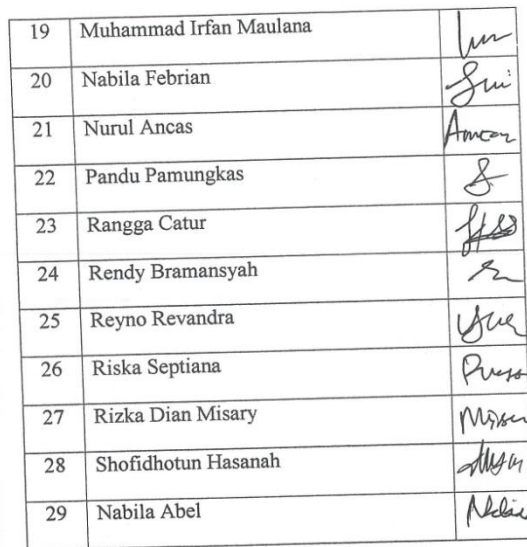 19 Muhammad Irfan Maulana
20 Nabila Febrian
21 Nurul Ancas
22 Pandu Pamungkas
23 Rangga Catur
24 Rendy Bramansyah
25 Reyno Revandra
26 Riska Septiana
27 Rizka Dian Misary
28 Shofidhotun Hasanah
29 Nabila Abel